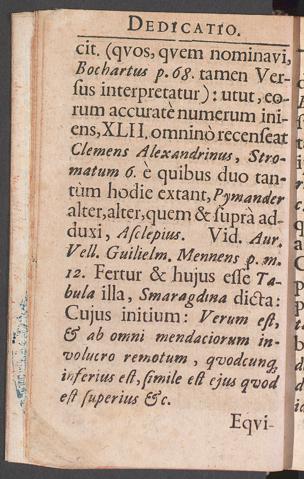 DEDICATIO.
cit. (qvos, qvem nominavi,
Bochartus p. 68. tamen Ver-
sus interpretatur) : utut, eo-
rum accuratè numerum ini-
ens, XLII. omninò recenseat
Clemens Alexandrinus, Stro-
matum 6. è quibus duo tan-
tùm hodie extant, Pymander
alter, alter, quem & suprà ad-
duxi, Asclepius. Vid. Aur.
Vell. Guilielm. Mennens p. m.
12. Fertur & hujus esse Ta-
bula illa, Smaragdina dicta:
Cujus initium: Verum est,
& ab omni mendaciorum in-
volucro remotum, qvodcunq;
inferius est, simile est ejus qvod
est superius &c.
Eqvi-